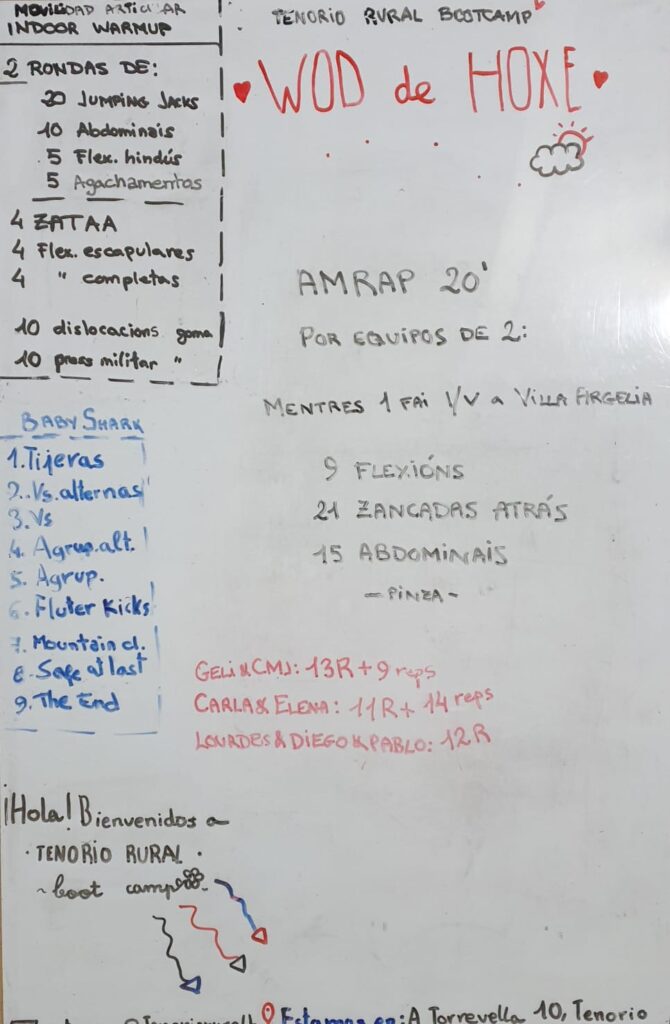 MOVILIDAD ARTICULAR
INDOOR WARMUP
2 RONDAS DE:
20 JUMPING JACKS
10 Abdominais
5 Flex. hindús
5 Agachamentos
4 ZATAA
4 Flex. escapulares
4 " completas
10 dislocacions goma
10 press militar "
BABY SHARK
1. Tijeras
2. Vs. alternas
3. Vs
4. Agrup. alt.
5. Agrup.
6. Fluter Kicks
7. Mountain cl.
8. Safe at last
9. The End
TENORIO RURAL BOOTCAMP
WOD de HOXE
AMRAP 20'
POR EQUIPOS DE 2:
MENTRES 1 FAI I/V a VILLA FIRGELIA
9 FLEXIÓNS
21 ZANCADAS ATRÁS
15 ABDOMINAIS
- PINZA -
GELI & CMJ: 13R + 9 reps
CARLA & ELENA: 11R + 14 reps
LOURDES & DIEGO & PABLO: 12R
¡Hola! Bienvenidos a
· TENORIO RURAL ·
~ boot camp
Estamos en: A Torrevella 10, Tenorio